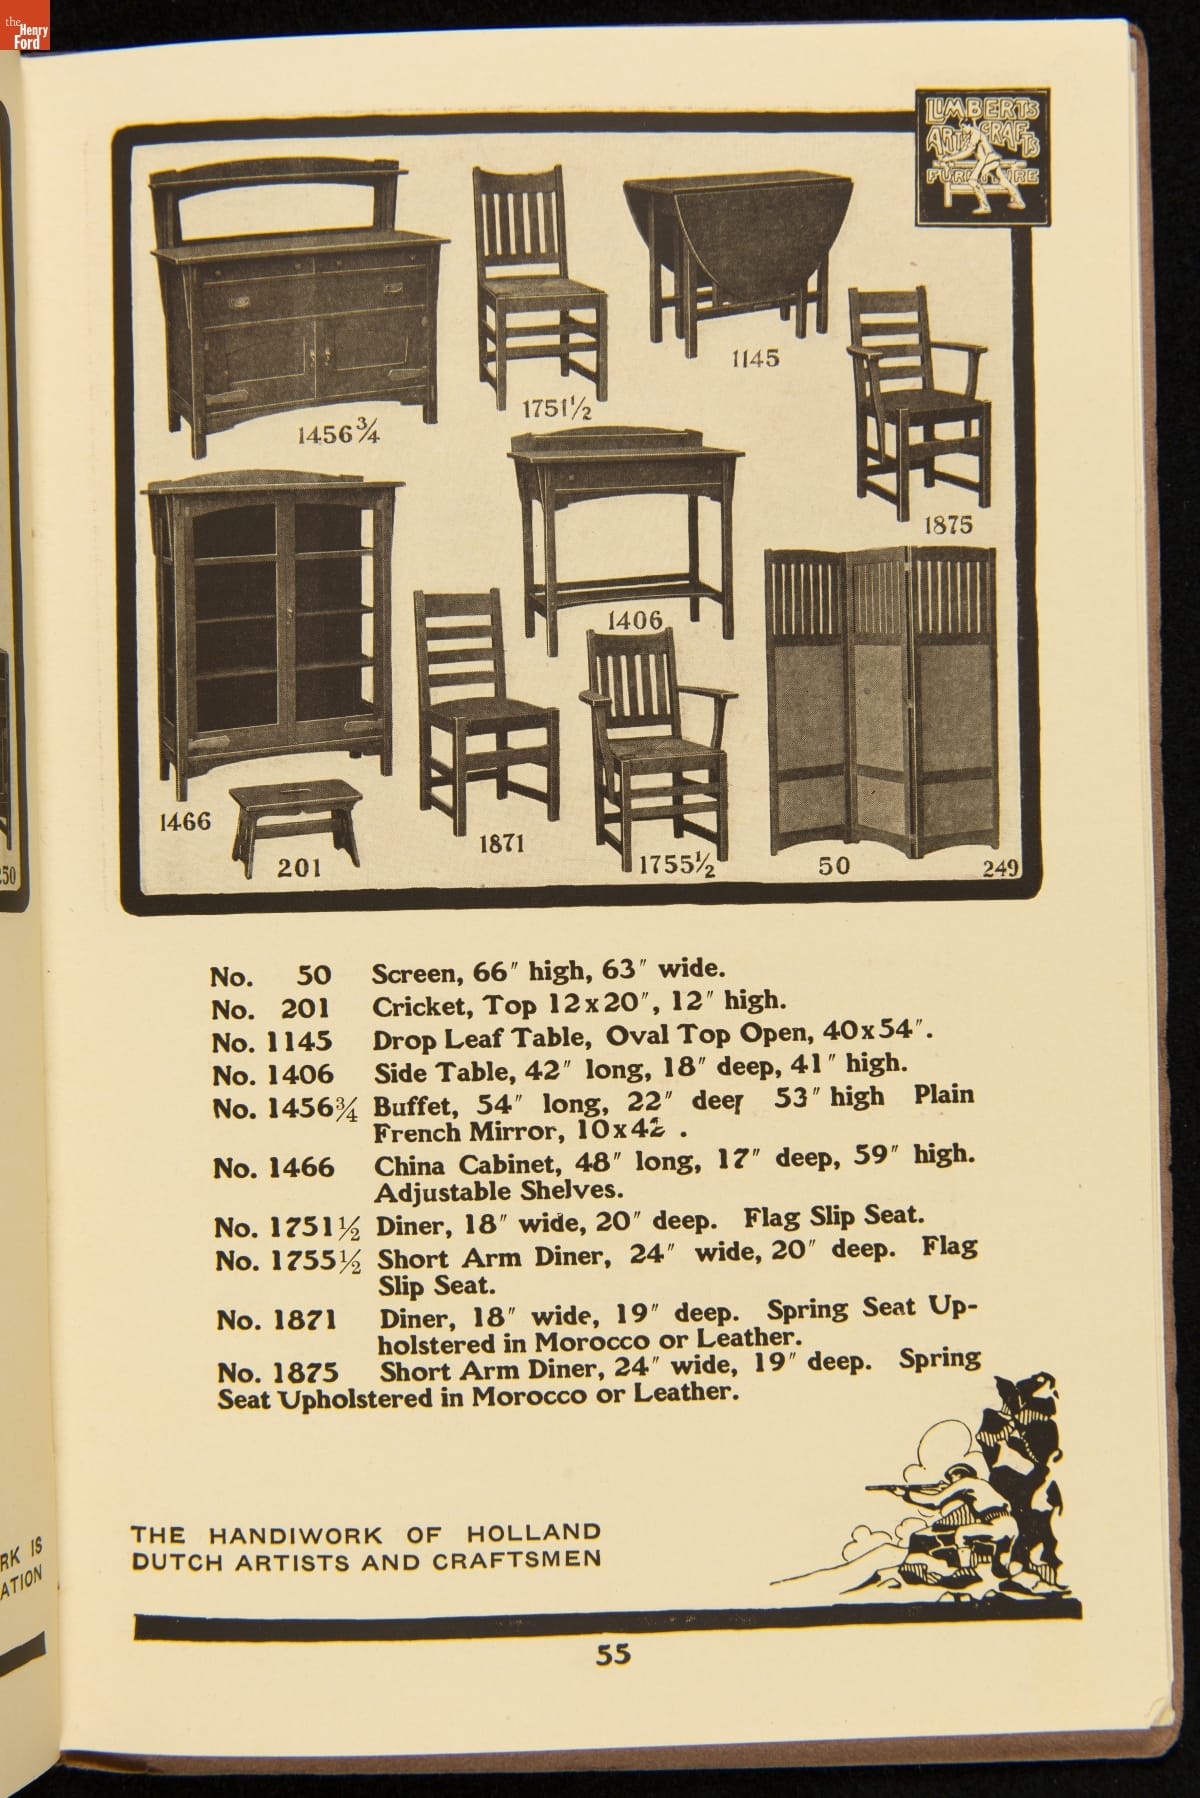 the
Henry
Ford
LIMBERTS
ARTS CRAFTS
FURNITURE
1456¾
1751½
1145
1875
1406
1466
201
1871
1755½
50
249
250
No. 50 Screen, 66" high, 63" wide.
No. 201 Cricket, Top 12x20", 12" high.
No. 1145 Drop Leaf Table, Oval Top Open, 40x54".
No. 1406 Side Table, 42" long, 18" deep, 41" high.
No. 1456¾ Buffet, 54" long, 22" deep 53" high Plain
French Mirror, 10x42 .
No. 1466 China Cabinet, 48" long, 17" deep, 59" high.
Adjustable Shelves.
No. 1751½ Diner, 18" wide, 20" deep. Flag Slip Seat.
No. 1755½ Short Arm Diner, 24" wide, 20" deep. Flag
Slip Seat.
No. 1871 Diner, 18" wide, 19" deep. Spring Seat Up-
holstered in Morocco or Leather.
No. 1875 Short Arm Diner, 24" wide, 19" deep. Spring
Seat Upholstered in Morocco or Leather.
RK IS
ATION
THE HANDIWORK OF HOLLAND
DUTCH ARTISTS AND CRAFTSMEN
55